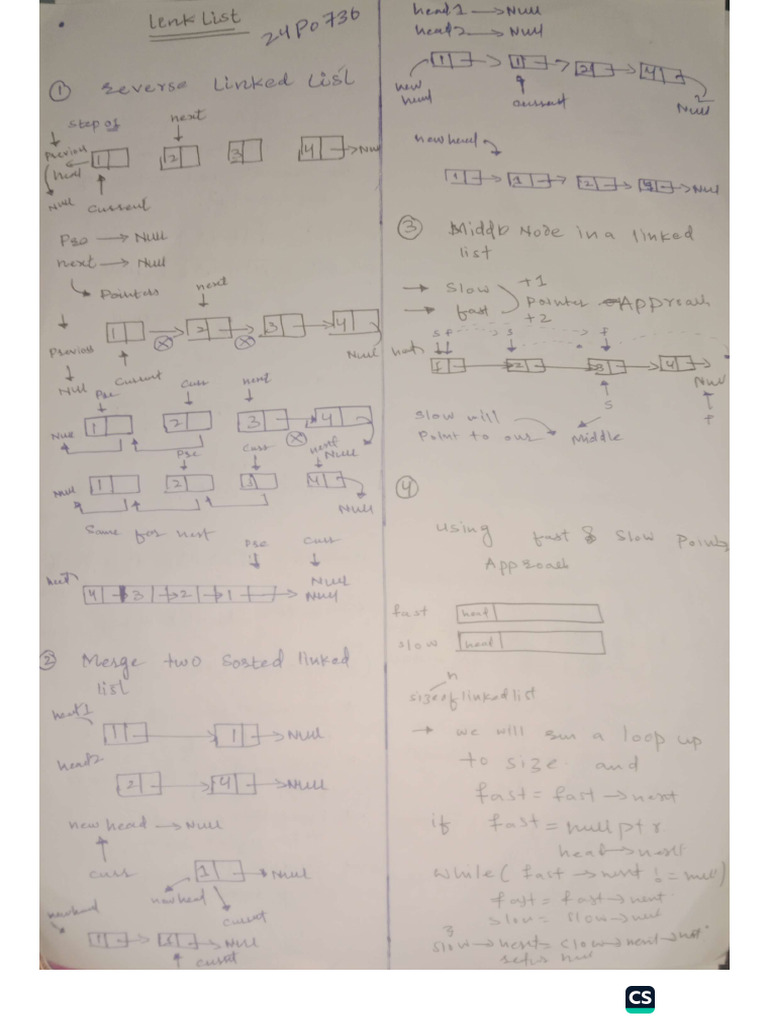 Lenk List
24P0736
① Reverse Linked List
Step 01
next
Previous
head
1 2 3 4 Null
Null Current
Pre → Null
next → Null
Pointers
next
1 2 3 4
Previous
Null
Null Current
Pre Curr next
1 2 3 4
Null
Pre Curr next
Null
1 2 3 4
Null
Null
Same for next
Pre Curr
Null
4 3 2 1 Null
② Merge two Sorted linked
list
head1
1 1 Null
head2
2 4 Null
new head → Null
curr
1 Null
newhead
current
newhead
1 1 Null
head1 → Null
head2 → Null
1 1 2 4
new
head
current
Null
newhead
1 1 2 4 Null
③ Middle Node in a linked
list
→ Slow +1
→ fast Pointer Approach
+2
S f S f
1 2 3 4
Null
S
f
Slow will
Point to our Middle
④
Using fast & Slow Points
Approach
fast head
slow head
n
size of linked list
→ we will run a loop up
to size and
fast = fast → next
if fast = nullptr
head → next
while ( fast → next != null)
fast = fast → next
slow = slow → next
}
slow → next = slow → next → next